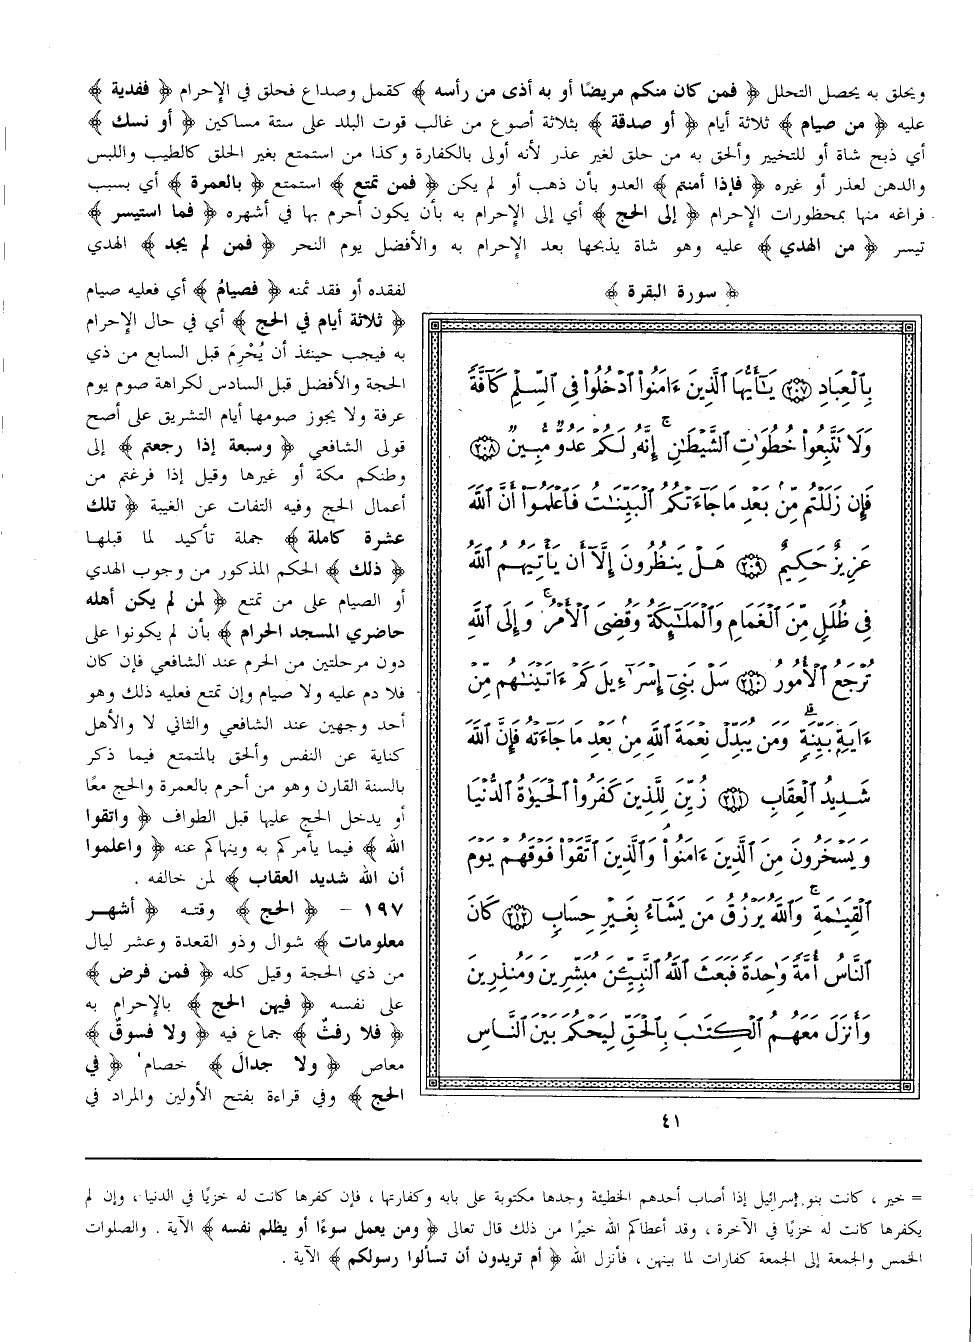 ويحلق به يحصل التحلل ﴿ فمن كان منكم مريضًا أو به أذى من رأسه ﴾ كقمل وصداع فحلق في الإحرام ﴿ ففدية ﴾
عليه ﴿ من صيام ﴾ ثلاثة أيام ﴿ أو صدقة ﴾ بثلاثة أصوع من غالب قوت البلد على ستة مساكين ﴿ أو نسك ﴾
أي ذبح شاة أو للتخيير وألحق به من حلق لغير عذر لأنه أولى بالكفارة وكذا من استمتع بغير الحلق كالطيب واللبس
والدهن لعذر أو غيره ﴿ فإذا أمنتم ﴾ العدو بأن ذهب أو لم يكن ﴿ فمن تمتع ﴾ استمتع ﴿ بالعمرة ﴾ أي بسبب
فراغه منها بمحظورات الإحرام ﴿ إلى الحج ﴾ أي إلى الإحرام به بأن يكون أحرم بها في أشهره ﴿ فما استيسر ﴾
تيسر ﴿ من الهدي ﴾ عليه وهو شاة يذبحها بعد الإحرام به والأفضل يوم النحر ﴿ فمن لم يجد ﴾ الهدي
﴿ سورة البقرة ﴾
بِٱلْعِبَادِ ﴿٢٠٧﴾ يَـٰٓأَيُّهَا ٱلَّذِينَ ءَامَنُوا۟ ٱدْخُلُوا۟ فِى ٱلسِّلْمِ كَآفَّةً
وَلَا تَتَّبِعُوا۟ خُطُوَٰتِ ٱلشَّيْطَـٰنِ ۚ إِنَّهُۥ لَكُمْ عَدُوٌّ مُّبِينٌ ﴿٢٠٨﴾
فَإِن زَلَلْتُم مِّنۢ بَعْدِ مَا جَآءَتْكُمُ ٱلْبَيِّنَـٰتُ فَٱعْلَمُوٓا۟ أَنَّ ٱللَّهَ
عَزِيزٌ حَكِيمٌ ﴿٢٠٩﴾ هَلْ يَنظُرُونَ إِلَّآ أَن يَأْتِيَهُمُ ٱللَّهُ
فِى ظُلَلٍ مِّنَ ٱلْغَمَامِ وَٱلْمَلَـٰٓئِكَةُ وَقُضِىَ ٱلْأَمْرُ ۚ وَإِلَى ٱللَّهِ
تُرْجَعُ ٱلْأُمُورُ ﴿٢١٠﴾ سَلْ بَنِىٓ إِسْرَٰٓءِيلَ كَمْ ءَاتَيْنَـٰهُم مِّنْ
ءَايَةٍۭ بَيِّنَةٍ ۗ وَمَن يُبَدِّلْ نِعْمَةَ ٱللَّهِ مِنۢ بَعْدِ مَا جَآءَتْهُ فَإِنَّ ٱللَّهَ
شَدِيدُ ٱلْعِقَابِ ﴿٢١١﴾ زُيِّنَ لِلَّذِينَ كَفَرُوا۟ ٱلْحَيَوٰةُ ٱلدُّنْيَا
وَيَسْخَرُونَ مِنَ ٱلَّذِينَ ءَامَنُوا۟ ۘ وَٱلَّذِينَ ٱتَّقَوْا۟ فَوْقَهُمْ يَوْمَ
ٱلْقِيَـٰمَةِ ۗ وَٱللَّهُ يَرْزُقُ مَن يَشَآءُ بِغَيْرِ حِسَابٍ ﴿٢١٢﴾ كَانَ
ٱلنَّاسُ أُمَّةً وَٰحِدَةً فَبَعَثَ ٱللَّهُ ٱلنَّبِيِّـۧنَ مُبَشِّرِينَ وَمُنذِرِينَ
وَأَنزَلَ مَعَهُمُ ٱلْكِتَـٰبَ بِٱلْحَقِّ لِيَحْكُمَ بَيْنَ ٱلنَّاسِ
٤١
لفقده أو فقد ثمنه ﴿ فصيامُ ﴾ أي فعليه صيام
﴿ ثلاثة أيام في الحج ﴾ أي في حال الإحرام
به فيجب حينئذ أن يُحْرِمَ قبل السابع من ذي
الحجة والأفضل قبل السادس لكراهة صوم يوم
عرفة ولا يجوز صومها أيام التشريق على أصح
قولى الشافعي ﴿ وسبعة إذا رجعتم ﴾ إلى
وطنكم مكة أو غيرها وقيل إذا فرغتم من
أعمال الحج وفيه التفات عن الغيبة ﴿ تلك
عشرة كاملة ﴾ جملة تأكيد لما قبلها
﴿ ذلك ﴾ الحكم المذكور من وجوب الهدي
أو الصيام على من تمتع ﴿ لمن لم يكن أهله
حاضري المسجد الحرام ﴾ بأن لم يكونوا على
دون مرحلتين من الحرم عند الشافعي فإن كان
فلا دم عليه ولا صيام وإن تمتع فعليه ذلك وهو
أحد وجهين عند الشافعي والثاني لا والأهل
كناية عن النفس وألحق بالمتمتع فيما ذكر
بالسنة القارن وهو من أحرم بالعمرة والحج معًا
أو يدخل الحج عليها قبل الطواف ﴿ واتقوا
الله ﴾ فيما يأمركم به وينهاكم عنه ﴿ واعلموا
أن الله شديد العقاب ﴾ لمن خالفه .
١٩٧ – ﴿ الحج ﴾ وقته ﴿ أشهر
معلومات ﴾ شوال وذو القعدة وعشر ليال
من ذي الحجة وقيل كله ﴿ فمن فرض ﴾
على نفسه ﴿ فيهن الحج ﴾ بالإحرام به
﴿ فلا رفثٌ ﴾ جماع فيه ﴿ ولا فسوقٌ ﴾
معاص ﴿ ولا جدالَ ﴾ خصام ﴿ في
الحج ﴾ وفي قراءة بفتح الأولين والمراد في
= خير ، كانت بنو إسرائيل إذا أصاب أحدهم الخطيئة وجدها مكتوبة على بابه وكفارتها ، فإن كفرها كانت له خزيًا في الدنيا ، وإن لم
يكفرها كانت له خزيًا في الآخرة ، وقد أعطاكم الله خيرًا من ذلك قال تعالى ﴿ ومن يعمل سوءًا أو يظلم نفسه ﴾ الآية . والصلوات
الخمس والجمعة إلى الجمعة كفارات لما بينهن ، فأنزل الله ﴿ أم تريدون أن تسألوا رسولكم ﴾ الآية .